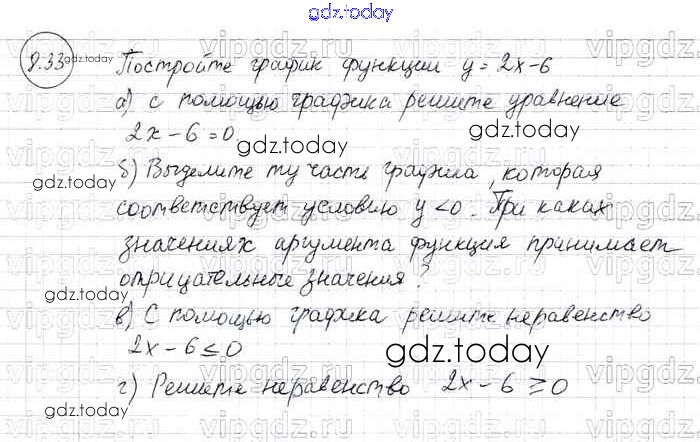 gdz.today
8.33 Постройте график функции y = 2x-6
а) С помощью графика решите уравнение
2x - 6 = 0
б) Выделите ту часть графика, которая
соответствует условию y < 0. При каких
значениях аргумента функция принимает
отрицательные значения?
в) С помощью графика решите неравенство
2x - 6 ≤ 0
г) Решите неравенство 2x - 6 ≥ 0
gdz.today
gdz.today
gdz.today
gdz.today
gdz.today
gdz.today
gdz.today